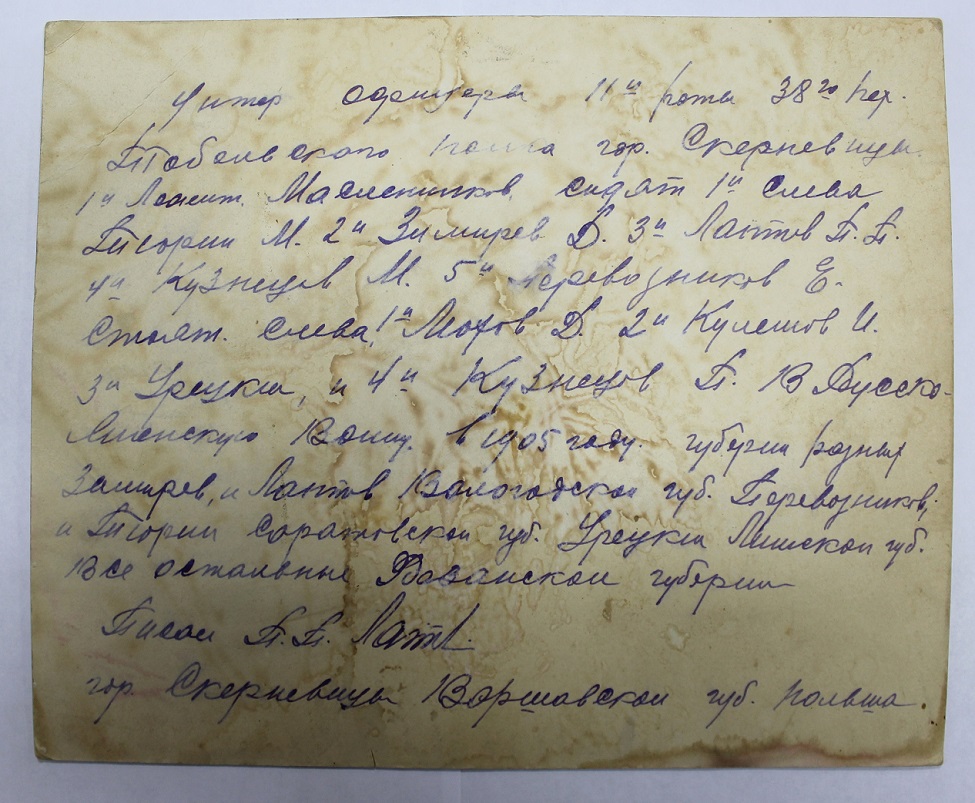 Унтер офицеры 11й роты 38го пех.
Тобольского полка гор. Скерневицы.
1й Лежит. Масленников, сидят 1й слева
Тюрин М. 2й Зимирев Д. 3й Лаптов П. П.
4й Кузнецов М. 5й Перевозников Е.
стоят. слева, 1й Мохов Д. 2й Кулешов И.
3й Урецкий, и 4й Кузнецов П. В Русско-
Японскую Войну. в 1905 году. губерний разных
Зимирев, и Лаптов Вологодской губ. Перевозников,
и Тюрин Саратовской губ. Урецкий Минской губ.
Все остальные Рязанской губернии
Писал П. П. Лапт
гор. Скерневицы Варшавской губ. Польша.